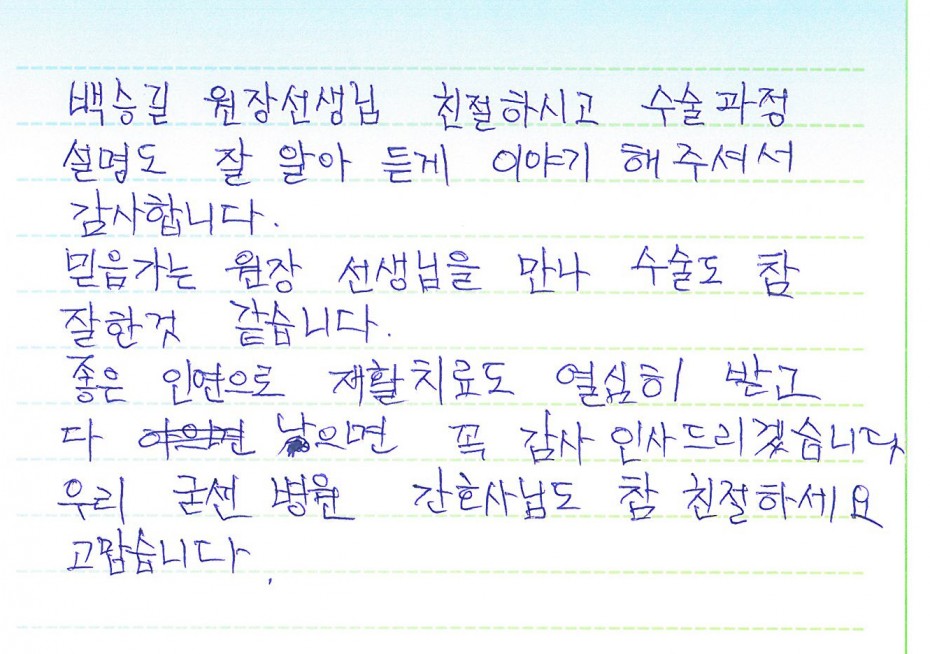 백승길 원장선생님 친절하시고 수술과정
설명도 잘 알아 듣게 이야기 해주셔서
감사합니다.
믿음가는 원장 선생님을 만나 수술도 참
잘한것 같습니다.
좋은 인연으로 재활치료도 열심히 받고
다 낳으면 꼭 감사 인사드리겠습니다
우리 굳센 병원 간호사님도 참 친절하세요
고맙습니다.